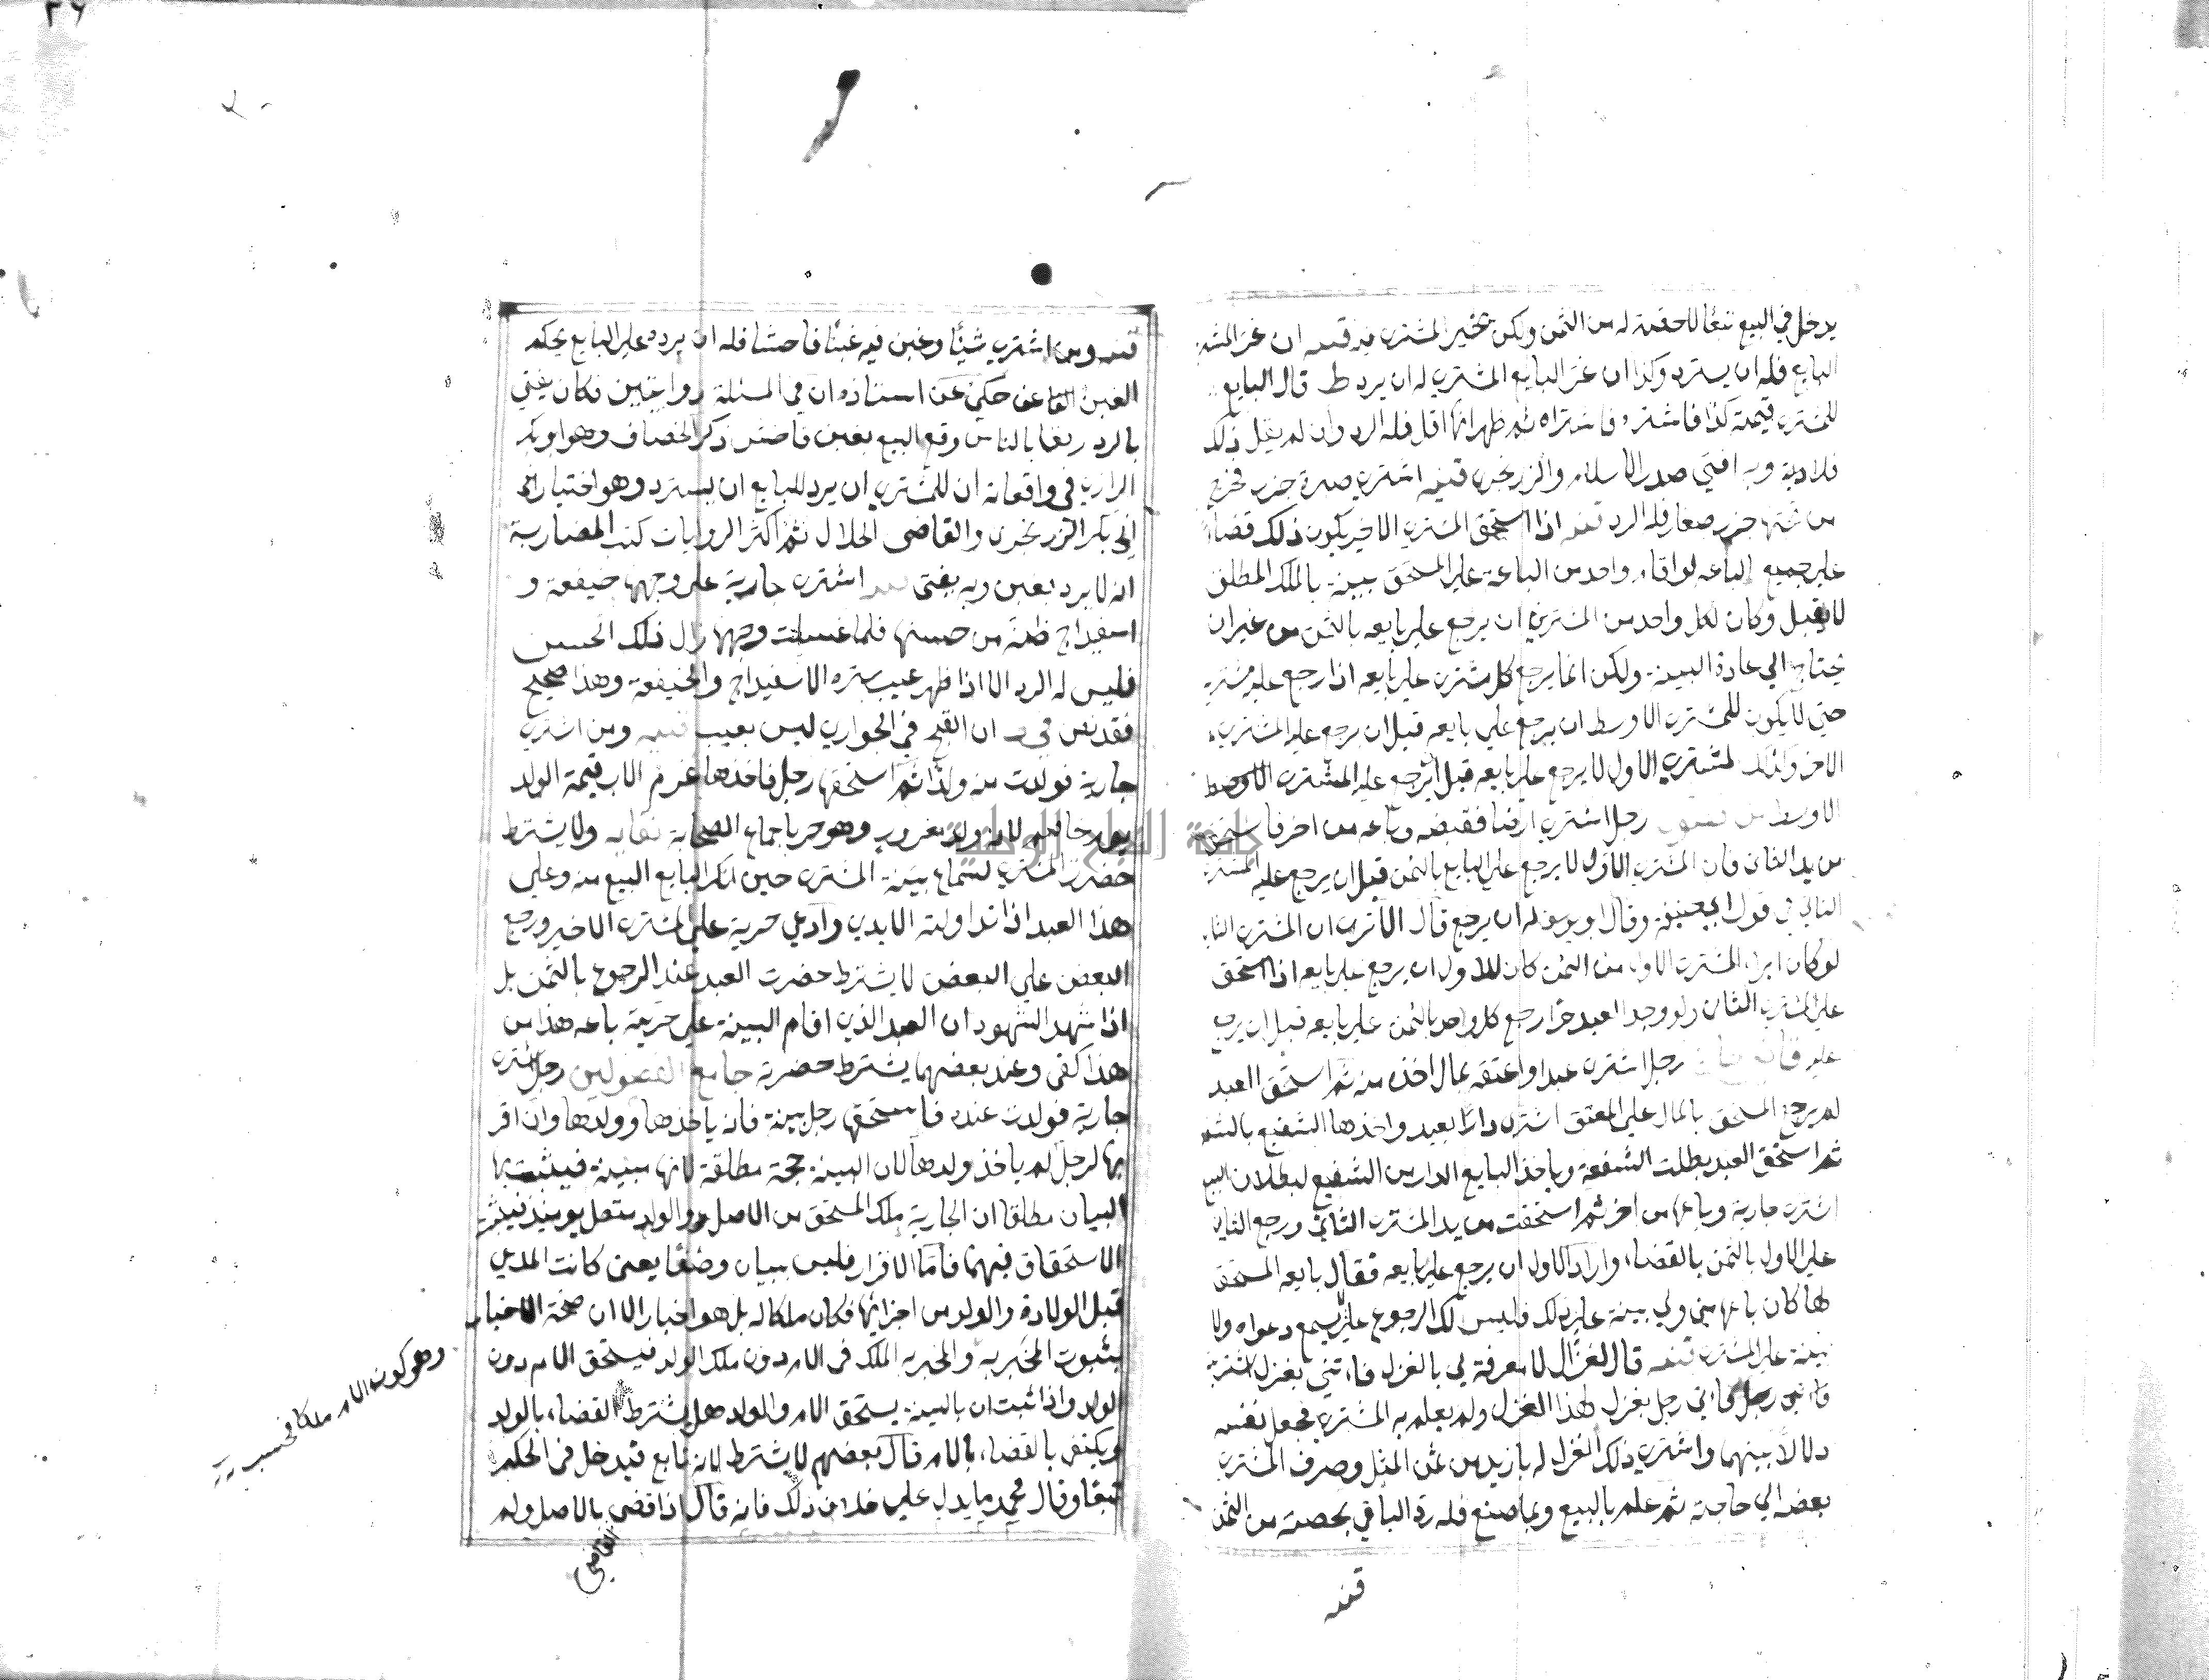 يدخل في البيع تبعا لا حصة له من الثمن ولكن يخير المشتري فيه قنيه ان غر المشتري
البايع فله ان يسترد وكذا ان غر البايع المشتري له ان يرد ط قال البايع
للمشتري قيمته كذا فاشتره فاشتراه ثم ظهر انها اقل فله الرد وان لم يقل ذلك
فلا وبه افتي صدر الاسلام والزرنجري قنيه اشتري صبرة فخرج
من تحتها صغار فله الرد قنيه اذا استحق المشتري الاخير يكون ذلك قضاء
علي جميع الباعه لو اقام واحد من الباعة علي المستحق بينة بالملك المطلق
لا يقبل وكان لكل واحد من المشتري ان يرجع علي بايعه بالثمن من غير ان
يحتاج الي عادة البينة ولكن انما يرجع كل مشتري علي بايعه اذا رجع عليه مشتريه
حتي لا يكون للمشتري الاوسط ان يرجع علي بايعه قبل ان يرجع عليه المشتري
الاخر وكذلك لمشتري الاول لا يرجع علي بايعه قبل ان يرجع عليه المشتري الاوسط
الاوسط من رجل اشتري ارضا فقبضه وباعه من اخر فاستحق
من يد الثاني فان المشتري الاول لا يرجع علي البايع بالثمن قبل ان يرجع عليه المشتري
الثاني في قول ابي حنيفة وقال ابو يوسف له ان يرجع قال الا تري ان المشتري الثاني
لو كان ابرا المشتري الاول من الثمن كان للاول ان يرجع علي بايعه اذا استحق
علي المشتري الثاني ولو وجد العبد حرا رجع كل واحد بالثمن علي بايعه قبل ان يرجع
عليه رجل اشتري عبدا واعتقه بمال اخذه منه ثم استحق العبد
لم يرجع المستحق بالمال علي المعتق اشتري دارا بعبد واخذها الشفيع بالشفعة
ثم استحق العبد بطلت الشفعة وياخذ البايع الدار من الشفيع لبطلان البيع
اشتري جارية وباعها من اخر ثم استحقت من يد المشتري الثاني ورجع الثاني
علي الاول بالثمن بالقضاء واراد الاول ان يرجع علي بايعه فقال بايعه المستحق
لها كان باعها مني ولي بينة علي ذلك فليس لك الرجوع علي يسمع دعواه ولا
بينة علي المشتري قنيه قال لغزال لا معرفة لي بالغزل فاءتني بغزل اشتريه
فاتي رجل بغزل لهذا الغزل ولم يعلم به المشتري فجعل نفسه
دلالا بينهما واشتري ذلك الغزل له بازيد من ثمن المثل وصرف المشتري
بعضه الي حاجته ثم علم بالبيع وبما صنع فله رد الباقي بحصته من الثمن
قنيه
٢٦
قنيه ومن اشتري شيئا وغبن فيه غبنا فاحشا فله ان يرده علي البايع بحكم
الغبن حكي عن استاذه ان في المسئلة روايتين فكان يفتي
بالرد رفقا بالناس وقع البيع بغبن فاحش ذكر الخصاف وهو ابو بكر
الرازي في واقعاته ان للمشتري ان يرد للبايع ان يسترد وهو اختيار
ابي بكر الزرنجري والقاضي الجلال ثم اكثر الروايات كتب المضاربة
انه لا يرد بغبن وبه يفتي اشتري جارية علي وجهها و
اسفيداج ظنه من حسنها فلما غسلت وجهها زال ذلك الحسن
فليس له الرد الا اذا ظهر عيب ستره الاسفيداج وهذا صحيح
فقد نص في ان القبح في الجواري ليس بعيب قنيه ومن اشتري
جارية فولدت منه ولدا ثم استحقها رجل فاخذها غرم الاب قيمة الولد
لانه ولد مغرور وهو حر باجماع الصحابة نقايه ولا يشترط
حضرة المشتري لسماع بينة المشتري حين انكر البايع البيع منه وعلي
هذا العبد اذا تداولته الايدي وادعي حرية علي المشتري الاخير ورجع
البعض علي البعض لا يشترط حضرت العبد عند الرجوع بالثمن بل
اذا شهد الشهود ان العبد الذي اقام البينة علي حريته باعه هذا من
هذا كفي وعند بعضهما يشترط حضرته جامع الفصولين رجل اشتري
جارية فولدت عنده فاستحقها رجل ببينة فانه ياخذها وولدها وان اقر
بها لرجل لم ياخذ ولدها لان البينة حجة مطلقة لانها مبينة فيثبت بها
البيان مطلقا ان الجارية ملك المستحق من الاصل والولد متصل يومئذ فيثبت
الاستحقاق فيهما فاما الاقرار فليس ببيان وضعا يعني كانت المدعي
قبل الولادة والولد من اجزائها فكان ملكا له بل هو اخبار الا ان صحة الاخبار
بثبوت المخبر به والمخبر به الملك في الام دون ملك الولد فيستحق الام دون
الولد واذا ثبت ان بالبينة يستحق الام والولد هل يشترط القضاء بالولد
ويكتفي بالقضاء بالام قال بعضهم لا يشترط لانه تابع فيدخل في الحكم
تبعا وقال محمد ما يدل علي خلاف ذلك فانه قال اذا قضي بالاصل ولم
القاضي
وهو كون الام ملكا فحسب